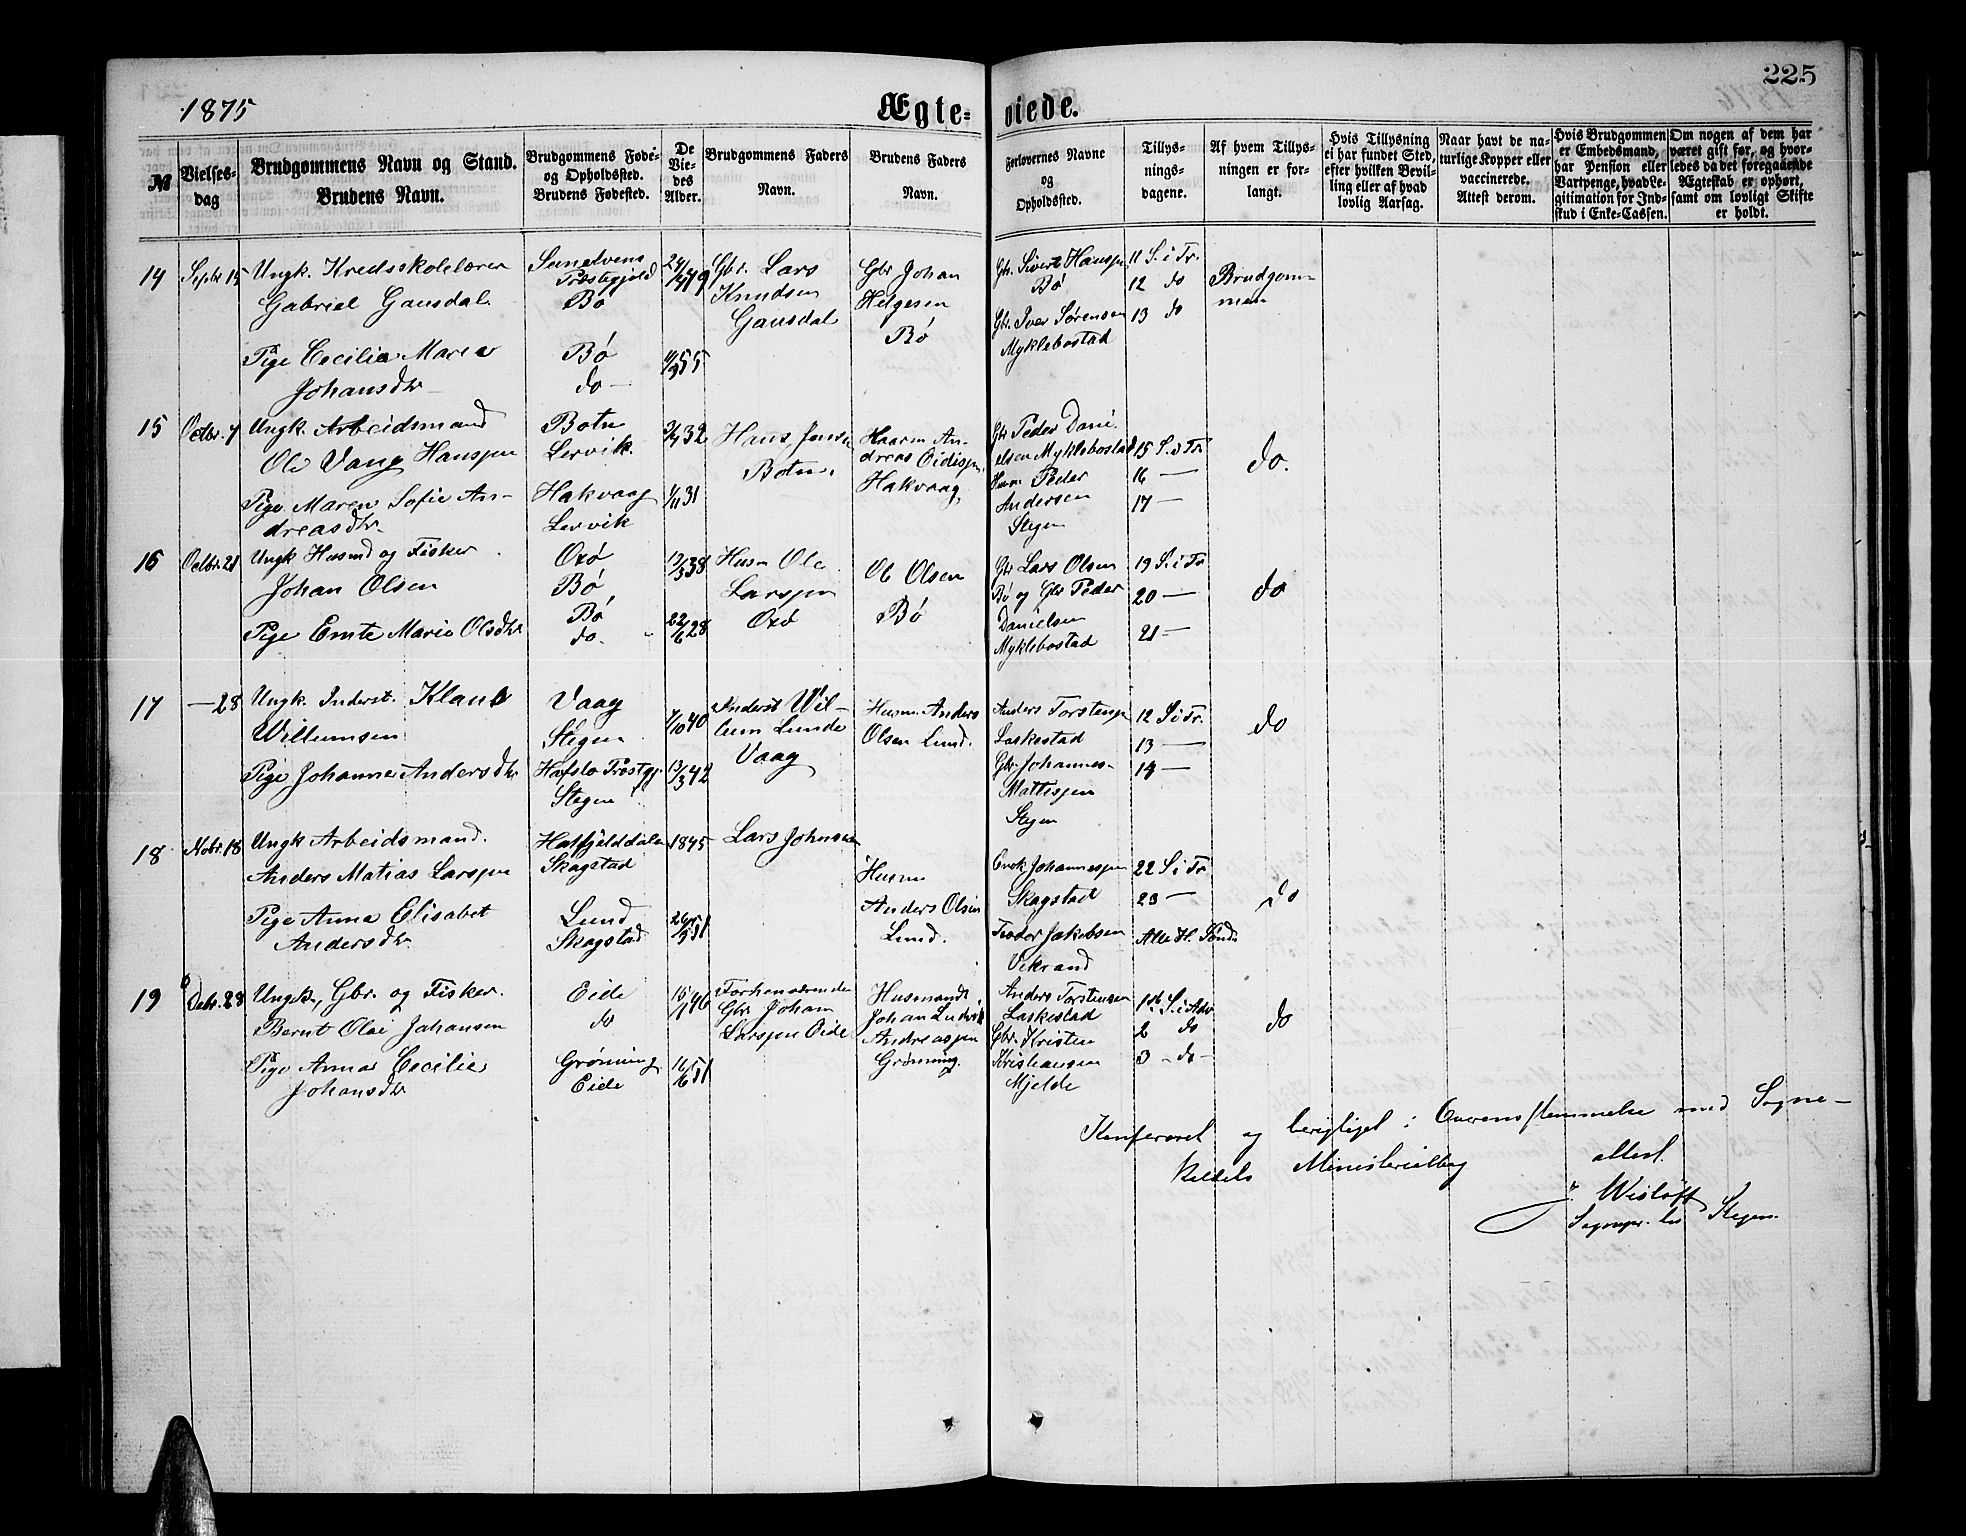 225
1875
Ægte-
viede.
№
Vielses-
dag
Brudgommens Navn og Stand.
Brudens Navn.
Brudgommens Føde-
og Opholdssted.
Brudens Fødested.
De
Vie-
des
Alder.
Brudgommens Faders
Navn.
Brudens Faders
Navn.
Forlovernes Navne
og
Opholdssted.
Tillys-
nings-
dagene.
Af hvem Tillys-
ningen er for-
langt.
Hvis Tillysning
ei har fundet Sted,
efter hvilken Bevil-
ling eller af hvad
lovlig Aarsag.
Naar havt de na-
turlige Kopper eller
vaccinerede.
Attest derom.
Hvis Brudgommen
er Embedsmand,
har Pension eller
Vartpenge, hvad Le-
gitimation for Ind-
skud i Enke-Cassen.
Om nogen af dem har
været gift før, og hvor-
ledes da det foregaaende
Ægteskab er ophørt,
samt om lovligt Skifte
er holdt.
14
Septbr 15
Ungk. Kredsskolelærer
Gabriel Gausdal
Pige Cecilia Maria
Johansdtr
Sunelvens
Præstegjeld
Bø
Bø
do
Gbr. Lars
Knudsen
Gausdal
Gbr Johan
Helgesen
Bø
Gbr. Sivert Hansen
Bø
Gbr. Iver Sørensen
Myklebostad
11 S. i Tr.
12 do
13 do
Brudgom-
men
15
Octbr. 7
Ungk. Arbeidsmand
Ole Vang Hansen
Pige Maren Sofie An-
dreasdtr.
Botn
Lervik.
Hakvaag
Lervik
32
1/11 31
Hans Jensen
Botn.
Husm An-
dreas
Hakvaag
Gbr Peder Dani-
elsen Myklebostad
Husm Peder
Andersen
Stegen
15 S. i Tr.
16 —
17 —
do.
16
Octbr. 21
Ungk Husmd og Fisker
Johan Olsen
Pige Ernte Marie Olsdtr
Oxø
Bø
Bø
do.
13/3 38
22/6 28
Husm Ole
Larsen
Oxø
Ole Olsen
Bø
Gbr Lars Olsen
Bø og Gbr Peder
Danielsen
Myklebostad
19 S. i Tr
20 —
21 —
do
17
— 28
Ungk. Inderst. Klaus
Willumsen
Pige Johanna Andersdtr
Vaag
Stegen
Hafslo Præstgj.
Stegen
7/10 40
13/3 42
Inderst Wil-
lum Lunde
Vaag
Husm. Anders
Olsen Lund.
Anders Torstensen
Laskestad
Gbr. Johannes
Mattisen
Stegen
12 S. i Tr.
13 —
14 —
do
18
Nobr. 18
Ungk Arbeidsmand.
Anders Matias Larsen
Pige Anna Elisabet
Andersdtr.
Hatfjelddalen
Skagstad
Lund
Skagstad
1845
26/5 51
Lars Johnsen
Husm
Anders Olsen
Lund.
Johannessen
Skagstad
Teodor Jakobsen
Vikrand
22 S. i Tr
23 —
Alle H. Sønd.
do
19
Debr. 28
Ungk., Gbr. og Fisker.
Bernt Olai Johansen
Pige Anna Cecilie
Johansdtr
Eide
do
Grønning
Eide
15/1 46
16/6 51
Forhenværende
Gbr. Johan
Larsen Eide
Husmand
Johan Ludvik
Andreassen
Grønning.
Anders Torstensen
Laskestad
Gbr. Kristen
Kristiansen
Mjelde
1ste S. i Adv
2 do
3 - do -
do
Konfereret og berigtiget i Overensstemmelse med Sogne-
kaldets Ministerialbog
attest.
J. Wisløff
Sognepr. til Stegen.